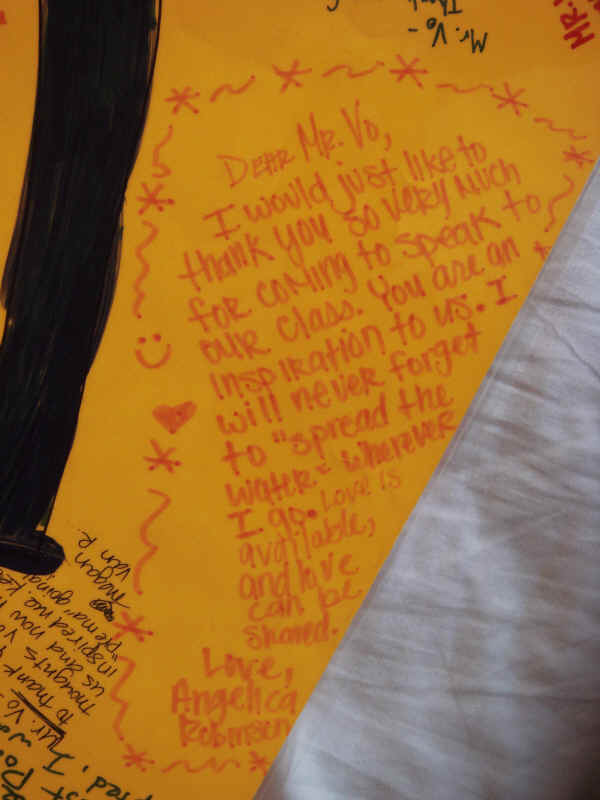 Mr. Vo -
Mr.
Dear Mr. Vo,
I would just like to
thank you so very much
for coming to speak to
our class. You are an
inspiration to us. I
will never forget
to "spread the
water" wherever
I go. Love is
available,
and love
can be
shared.
Love,
Angelica
Robinson
Mr. Vo -
to thank
thoughts
us and now
inspired me
Megan
Van R.